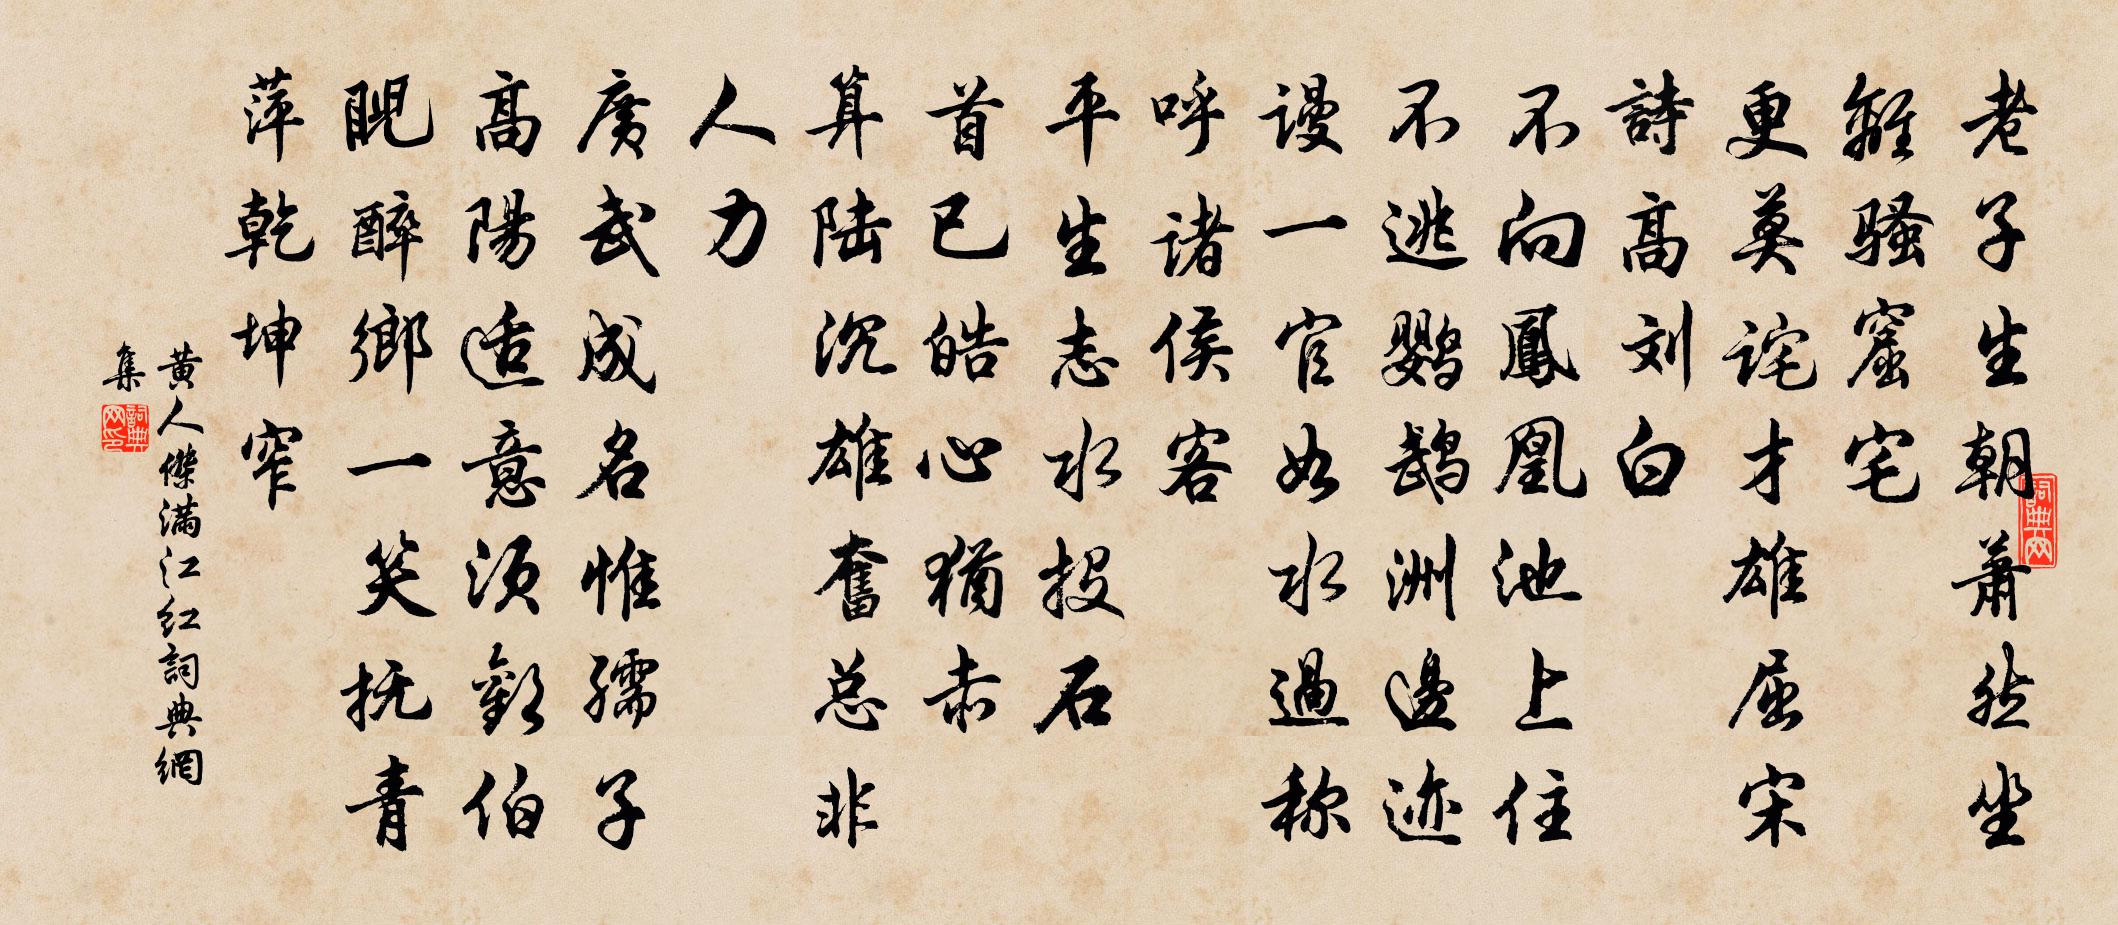 老子生朝萧然坐
離骚窟宅
更莫诧才雄屈宋
詩高刘白
不向鳳凰池上住
不逃鹦鹉洲邊迹
谩一官如水過称
呼诸侯客
平生志水投石
首已皓心犹赤
算陆沉雄奮总非
人力
广武成名惟孺子
高陽适意须歡伯
睨醉鄉一笑抚青
萍乾坤窄
黄人傑满江红詞典網
集
詞典网
詞典网印